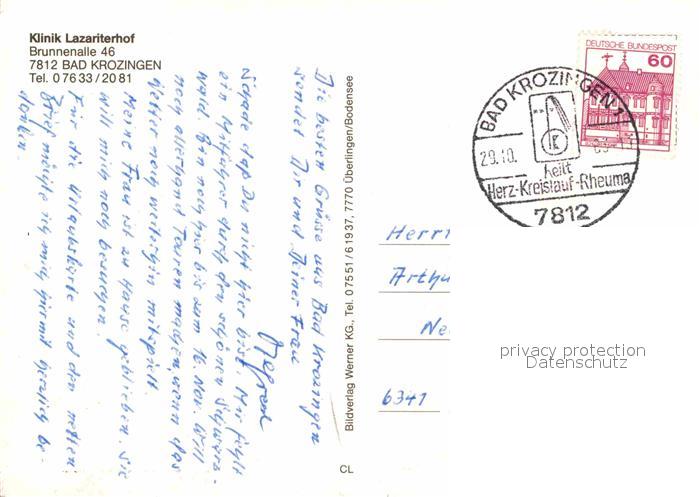 Klinik Lazariterhof
Brunnenalle 46
7812 BAD KROZINGEN
Tel. 0 76 33 / 20 81
Die besten Grüsse aus Bad Krozingen
sendet Dir und Deiner Frau
Alfred
Schade daß Du nicht hier bist. Mir fehlt
ein Mitfahrer durch den schönen Schwarz-
wald. Bin noch hier bis zum 16. Nov. Will
noch allerhand Touren machen wenn das
Wetter noch weiterhin mitspielt.
Meine Frau ist zu Hause geblieben. Sie
will mich noch besuchen.
Für die Urlaubskarte und den netten
Brief möchte ich mich hiermit herzlich be-
danken.
Bildverlag Werner KG., Tel. 0 75 51 / 6 19 37, 7770 Überlingen/Bodensee
CL
DEUTSCHE BUNDESPOST
60
BAD KROZINGEN 1
29.10.
heilt
Herz-Kreislauf-Rheuma
7812
Herrn
Arthu
Ne
6341
privacy protection
Datenschutz